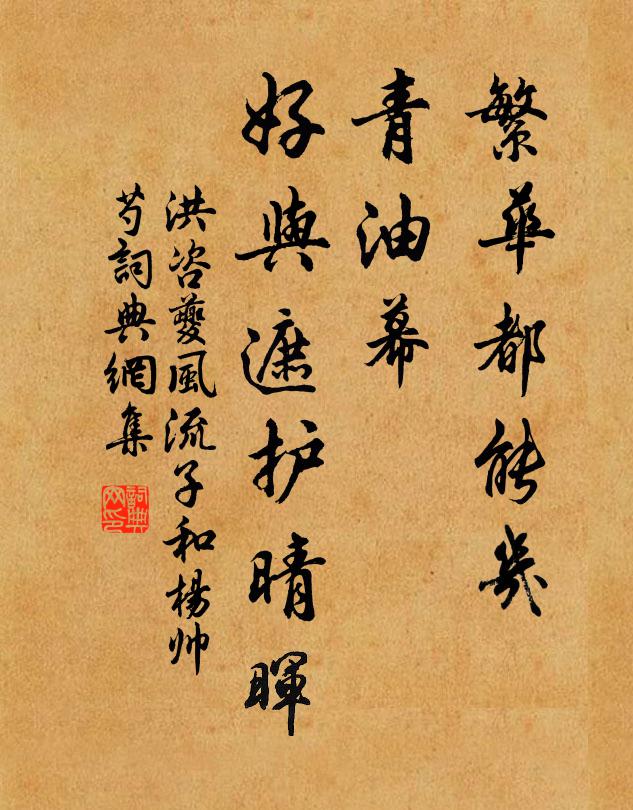 繁華都能幾
青油幕
好與遮护晴暉
洪咨夔風流子和楊帅
芍詞典網集
詞典网印